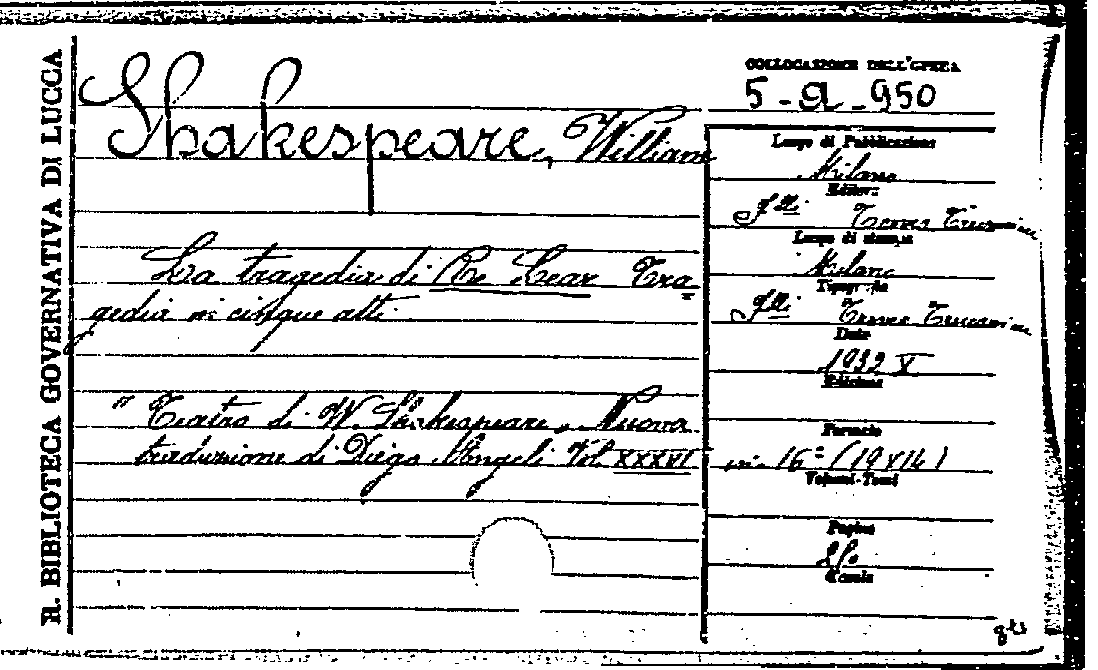 R. BIBLIOTECA GOVERNATIVA DI LUCCA
Shakespeare, William
La tragedia di Re Lear Tra=
gedia in cinque atti.
" Teatro di W. Shakespeare, Nuova
traduzione di Diego Angeli Vol. XXXVI
COLLOCAZIONE DELL'OPERA
5-a-950
Luogo di Pubblicazione
Milano
Editore
F.lli Treves
Luogo di stampa
Milano
Tipografia
F.lli Treves
Data
1932 X
Edizione
Formato
in- 16° (19x12)
Volumi-Tomi
Pagine
Tavole